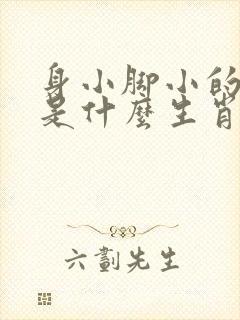 身小脚小的
是什麼生肖
六劃先生